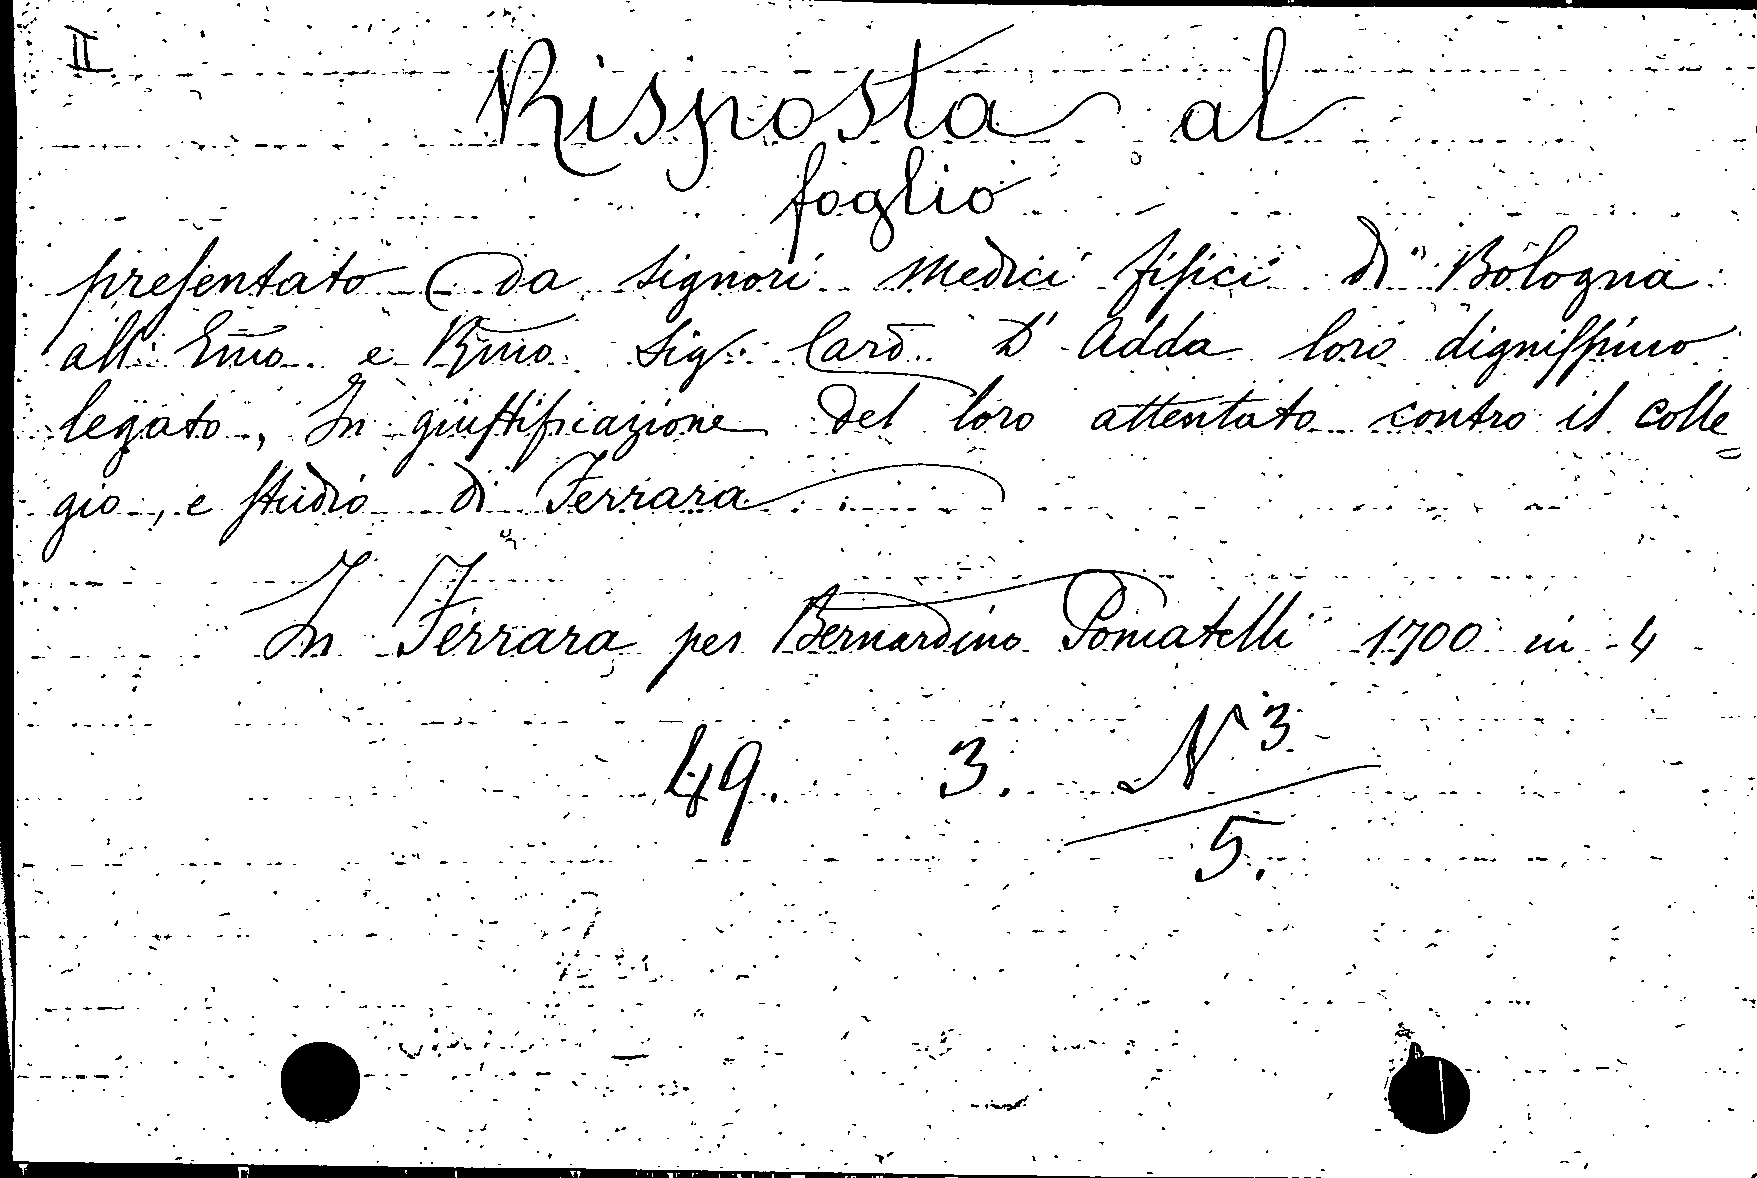 II
Risposta al
foglio
presentato da signori Medici fisici di Bologna
all' Emo e Rmo Sig. Card. D' Adda loro dignissimo
legato, In giustificazione del loro attentato contro il Colle=
gio, e studio di Ferrara
In Ferrara per Bernardino Pomatelli 1700 in 4
49. 3. N 3
5.